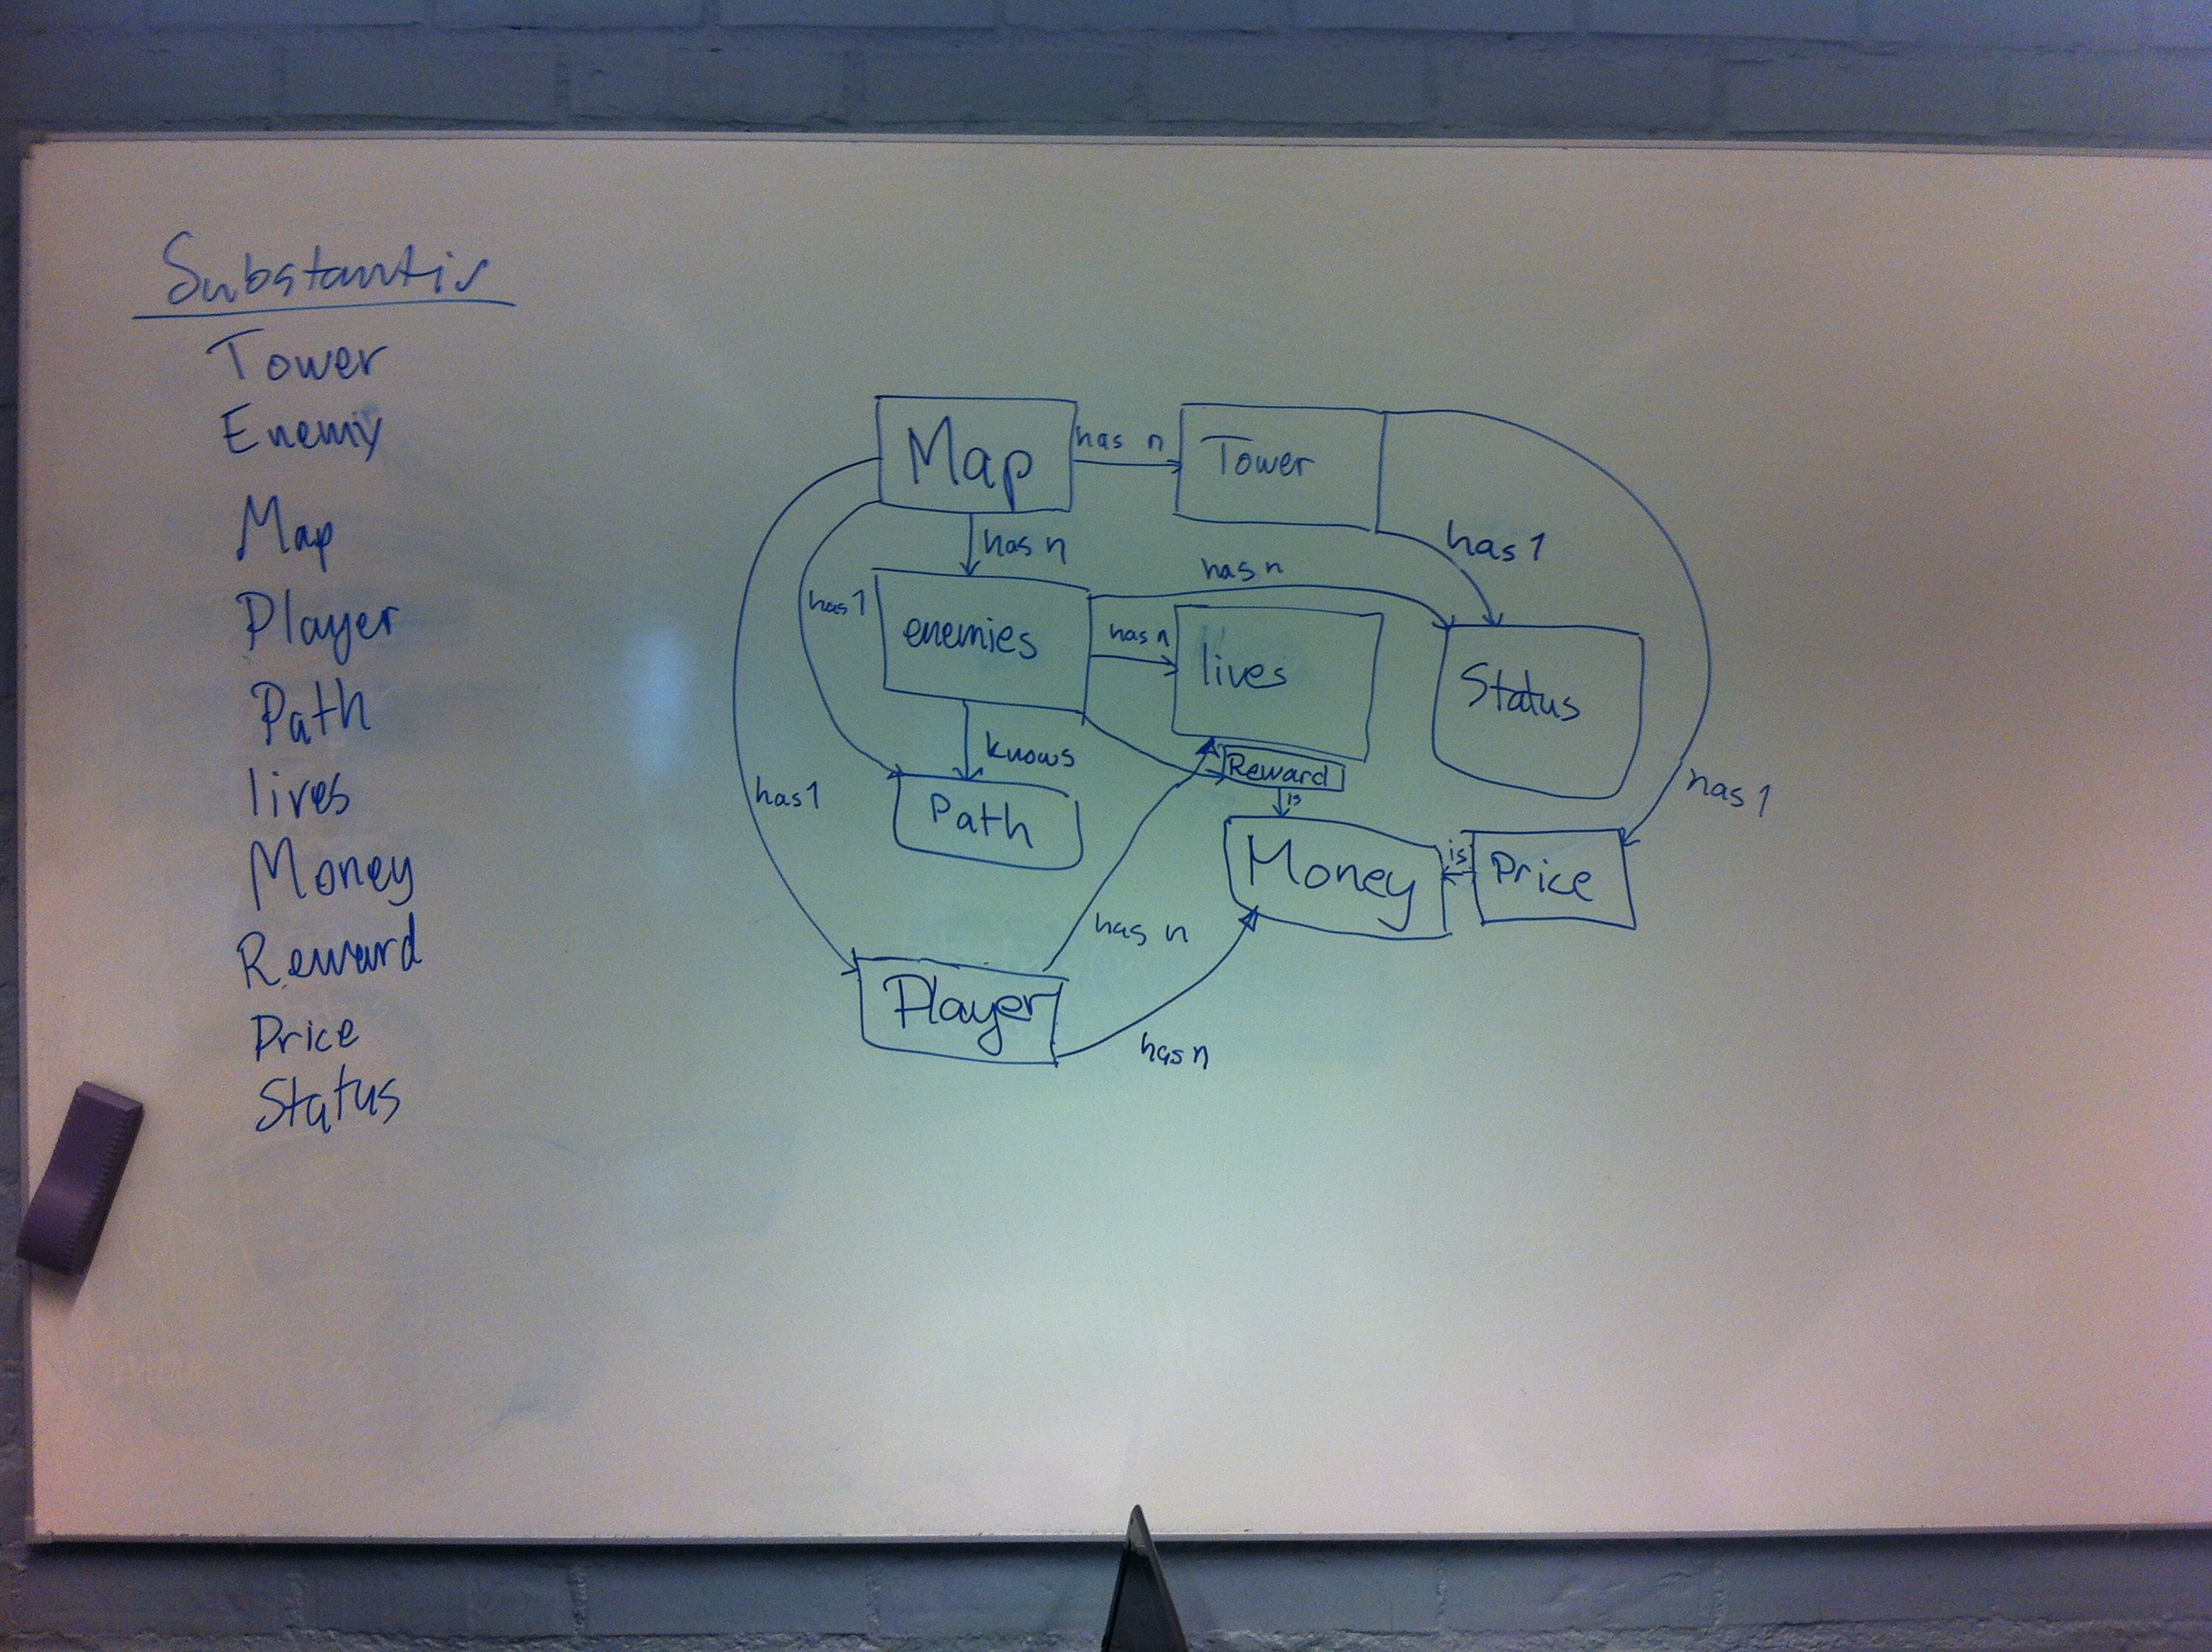 Substantiv
Tower
Enemy
Map
Player
Path
lives
Money
Reward
Price
Status
Map
has n
Tower
has n
has 1
has n
has 1
enemies
has n
lives
Status
knows
Reward
has 1
is
has 1
Path
Money
is
Price
has n
Player
has n